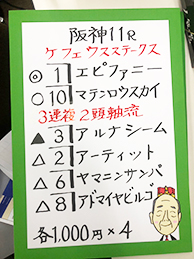 阪神11R
ケフェウスステークス
◎ 1 エピファニー
○ 10 マテンロウスカイ
3連複2頭軸流
▲ 3 アルナシーム
△ 2 アーティット
△ 6 ヤマニンサンパ
△ 8 アドマイヤビルゴ
各1,000円×4